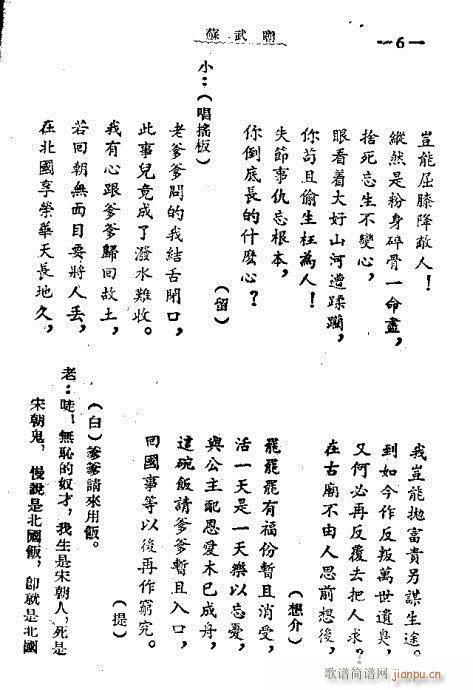 蘇武
—6—
豈能屈膝降敵人!
縱然是粉身碎骨一命盡,
捨死忘生不變心,
眼看着大好山河遭蹂躪,
你苟且偷生枉為人!
失節事仇忘根本,
你倒底長的什麽心?
(留)
小:(唱搖板)
老爹爹問的我結舌閉口,
此事兒竟成了潑水難收。
我有心跟爹爹歸回故土,
若回朝無面目要將人丟,
在北國享榮華天長地久,
我豈能拋富貴另謀生途。
到如今作反叛萬世遺臭,
又何必再反覆去把人求?
在古廟不由人思前想後,
(想介)
罷罷罷有福份暫且消受,
活一天是一天樂以忘憂,
與公主配恩愛木已成舟,
這碗飯請爹爹暫且入口,
回國事等以後再作窮究。
(提)
(白)爹爹請來用飯。
老:哇,無恥的奴才,我生是宋朝人,死是
宋朝鬼,慢說是北國飯,卽就是北國
歌谱简谱网
jianpu.cn